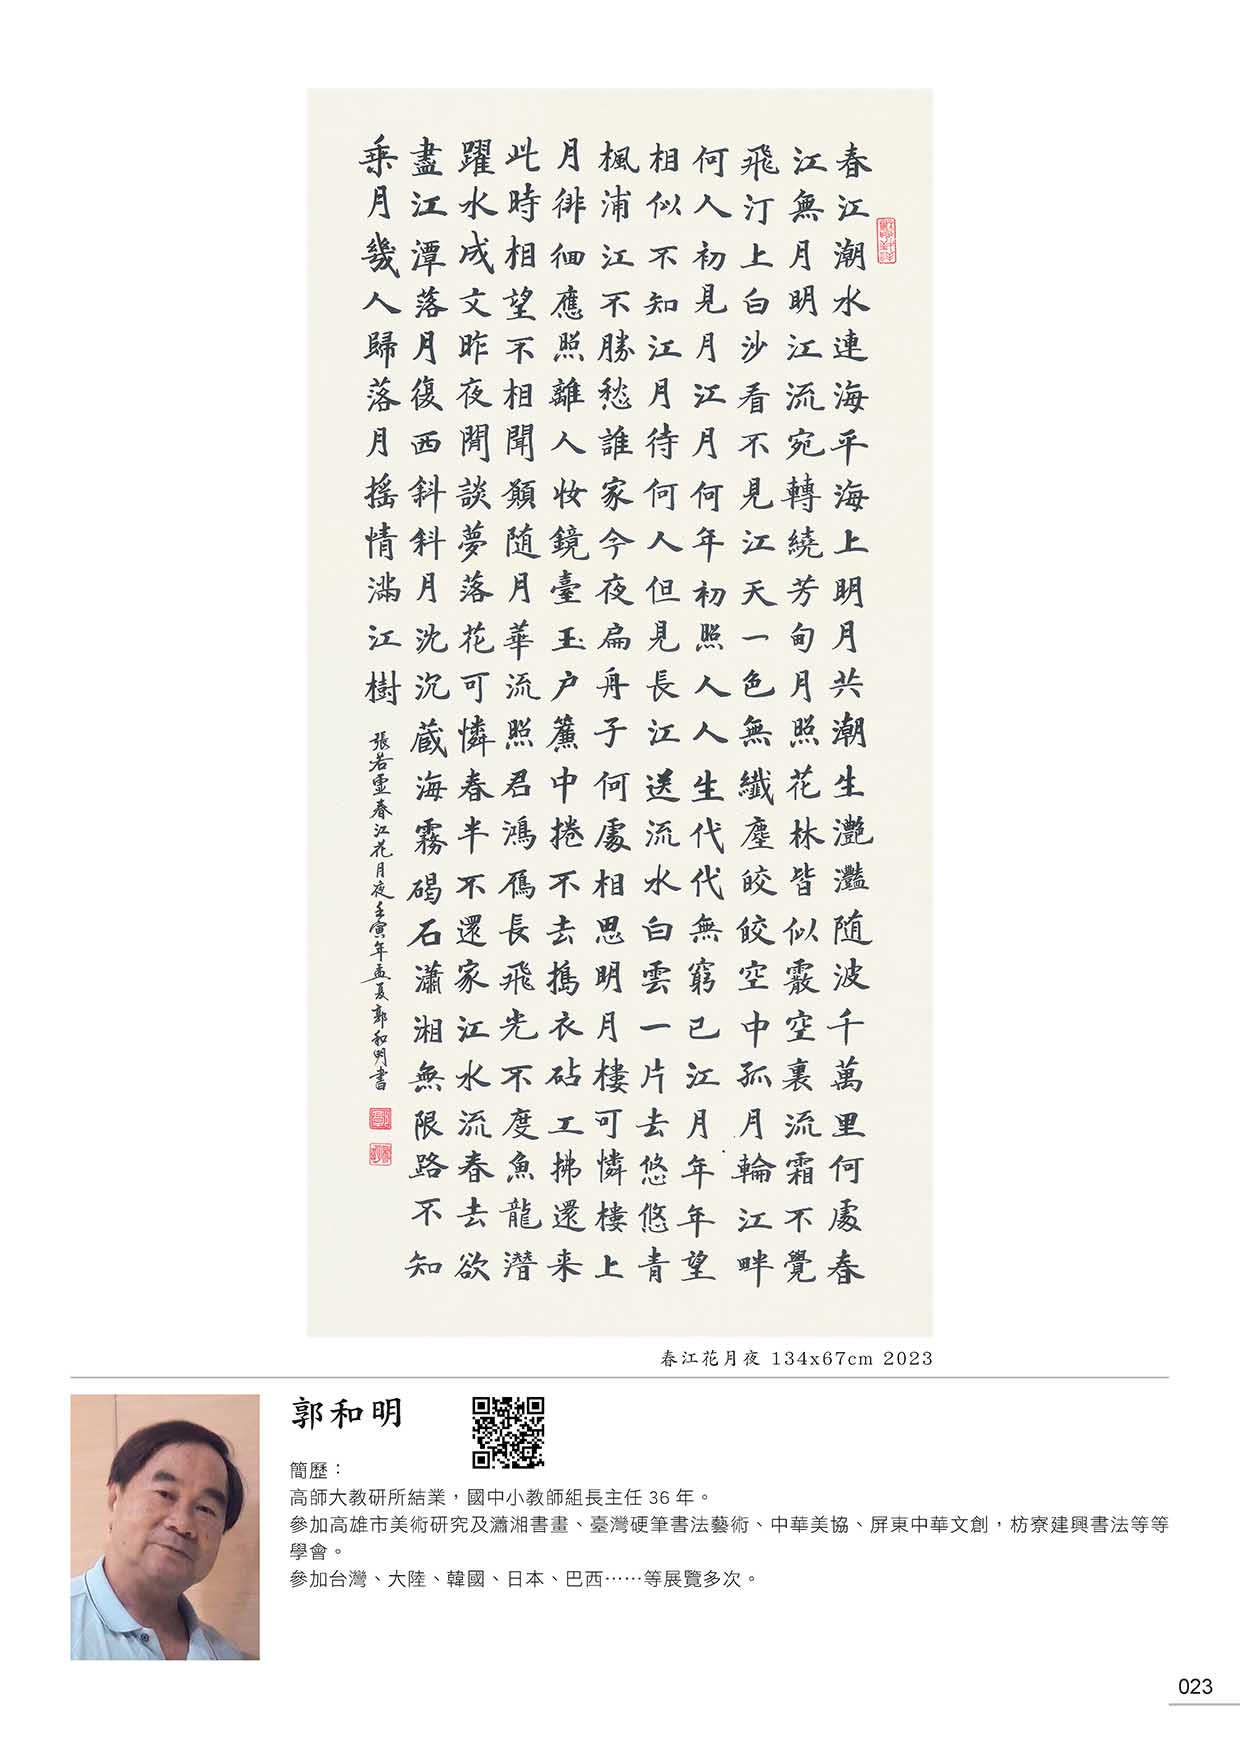 春江潮水連海平海上明月共潮生灧灩随波千萬里何處春
江無月明江流宛轉繞芳甸月照花林皆似霰空裏流霜不覺
飛汀上白沙看不見江天一色無纖塵皎皎空中孤月輪江畔
何人初見月江月何年初照人人生代代無窮已江月年年望
相似不知江月待何人但見長江送流水白雲一片去悠悠青
楓浦江不勝愁誰家今夜扁舟子何處相思明月樓可憐樓上
月徘徊應照離人妝鏡臺玉户簾中捲不去擣衣砧工拂還来
此時相望不相聞願随月華流照君鴻鴈長飛光不度魚龍潛
躍水成文昨夜閒談夢落花可憐春半不還家江水流春去欲
盡江潭落月復西斜斜月沈沉蔵海霧碣石瀟湘無限路不知
乗月幾人歸落月摇情滿江樹
張若虛春江花月夜壬寅年孟夏郭和明書
春江花月夜 134x67cm 2023
郭和明
簡歷：
高師大教研所結業，國中小教師組長主任 36 年。
參加高雄市美術研究及瀟湘書畫、臺灣硬筆書法藝術、中華美協、屏東中華文創，枋寮建興書法等等
學會。
參加台灣、大陸、韓國、日本、巴西……等展覽多次。
023